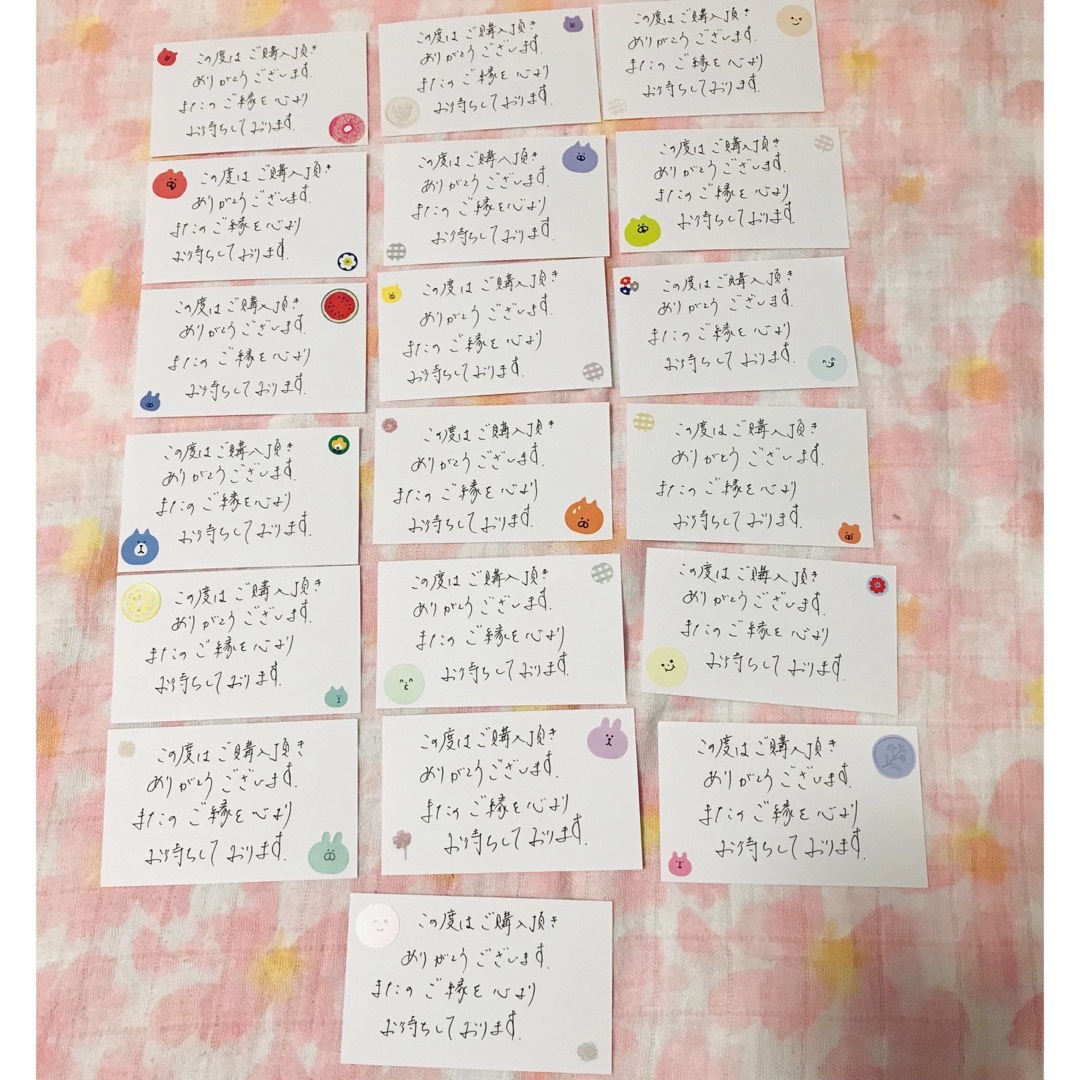 この度はご購入頂き
ありがとうございます.
またのご縁を心より
お待ちしております.
この度はご購入頂き
ありがとうございます.
またのご縁を心より
お待ちしております.
この度はご購入頂き
ありがとうございます.
またのご縁を心より
お待ちしております.
この度はご購入頂き
ありがとうございます.
またのご縁を心より
お待ちしております.
この度はご購入頂き
ありがとうございます.
またのご縁を心より
お待ちしております.
この度はご購入頂き
ありがとうございます.
またのご縁を心より
お待ちしております.
この度はご購入頂き
ありがとうございます.
またのご縁を心より
お待ちしております.
この度はご購入頂き
ありがとうございます.
またのご縁を心より
お待ちしております.
この度はご購入頂き
ありがとうございます.
またのご縁を心より
お待ちしております.
この度はご購入頂き
ありがとうございます.
またのご縁を心より
お待ちしております.
この度はご購入頂き
ありがとうございます.
またのご縁を心より
お待ちしております.
この度はご購入頂き
ありがとうございます.
またのご縁を心より
お待ちしております.
この度はご購入頂き
ありがとうございます.
またのご縁を心より
お待ちしております.
この度はご購入頂き
ありがとうございます.
またのご縁を心より
お待ちしております.
この度はご購入頂き
ありがとうございます.
またのご縁を心より
お待ちしております.
この度はご購入頂き
ありがとうございます.
またのご縁を心より
お待ちしております.
この度はご購入頂き
ありがとうございます.
またのご縁を心より
お待ちしております.
この度はご購入頂き
ありがとうございます.
またのご縁を心より
お待ちしております.
この度はご購入頂き
ありがとうございます.
またのご縁を心より
お待ちしております.